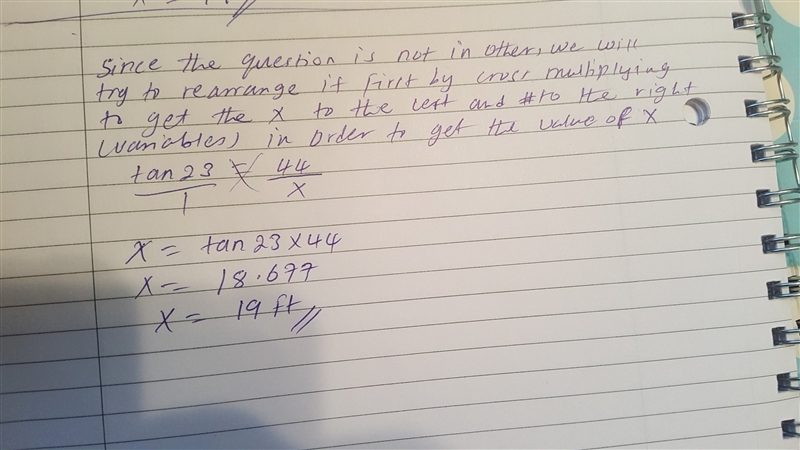 Since the question is not in other, we will
try to rearrange it first by cross multiplying
to get the x to the left and # to the right
(variables) in order to get the value of x
tan 23 = 44
1 x
x = tan 23 x 44
x = 18.677
x = 19 ft //